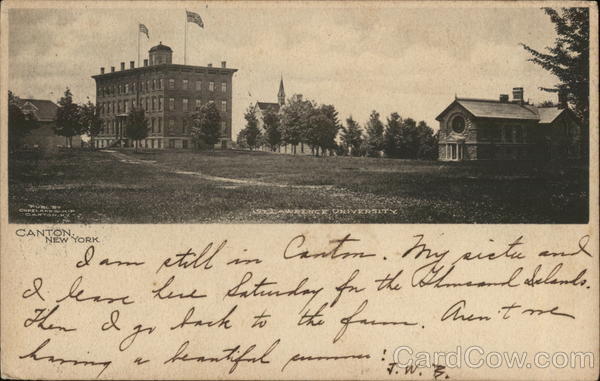 PUBL. BY
COPELAND SHIP
CANTON, N.Y.
ST. LAWRENCE UNIVERSITY.
CANTON,
NEW YORK.
I am still in Canton. My sister and
I leave here Saturday for the Thousand Islands.
Then I go back to the farm. Aren't we
having a beautiful summer!
J. W. B.
CardCow.com